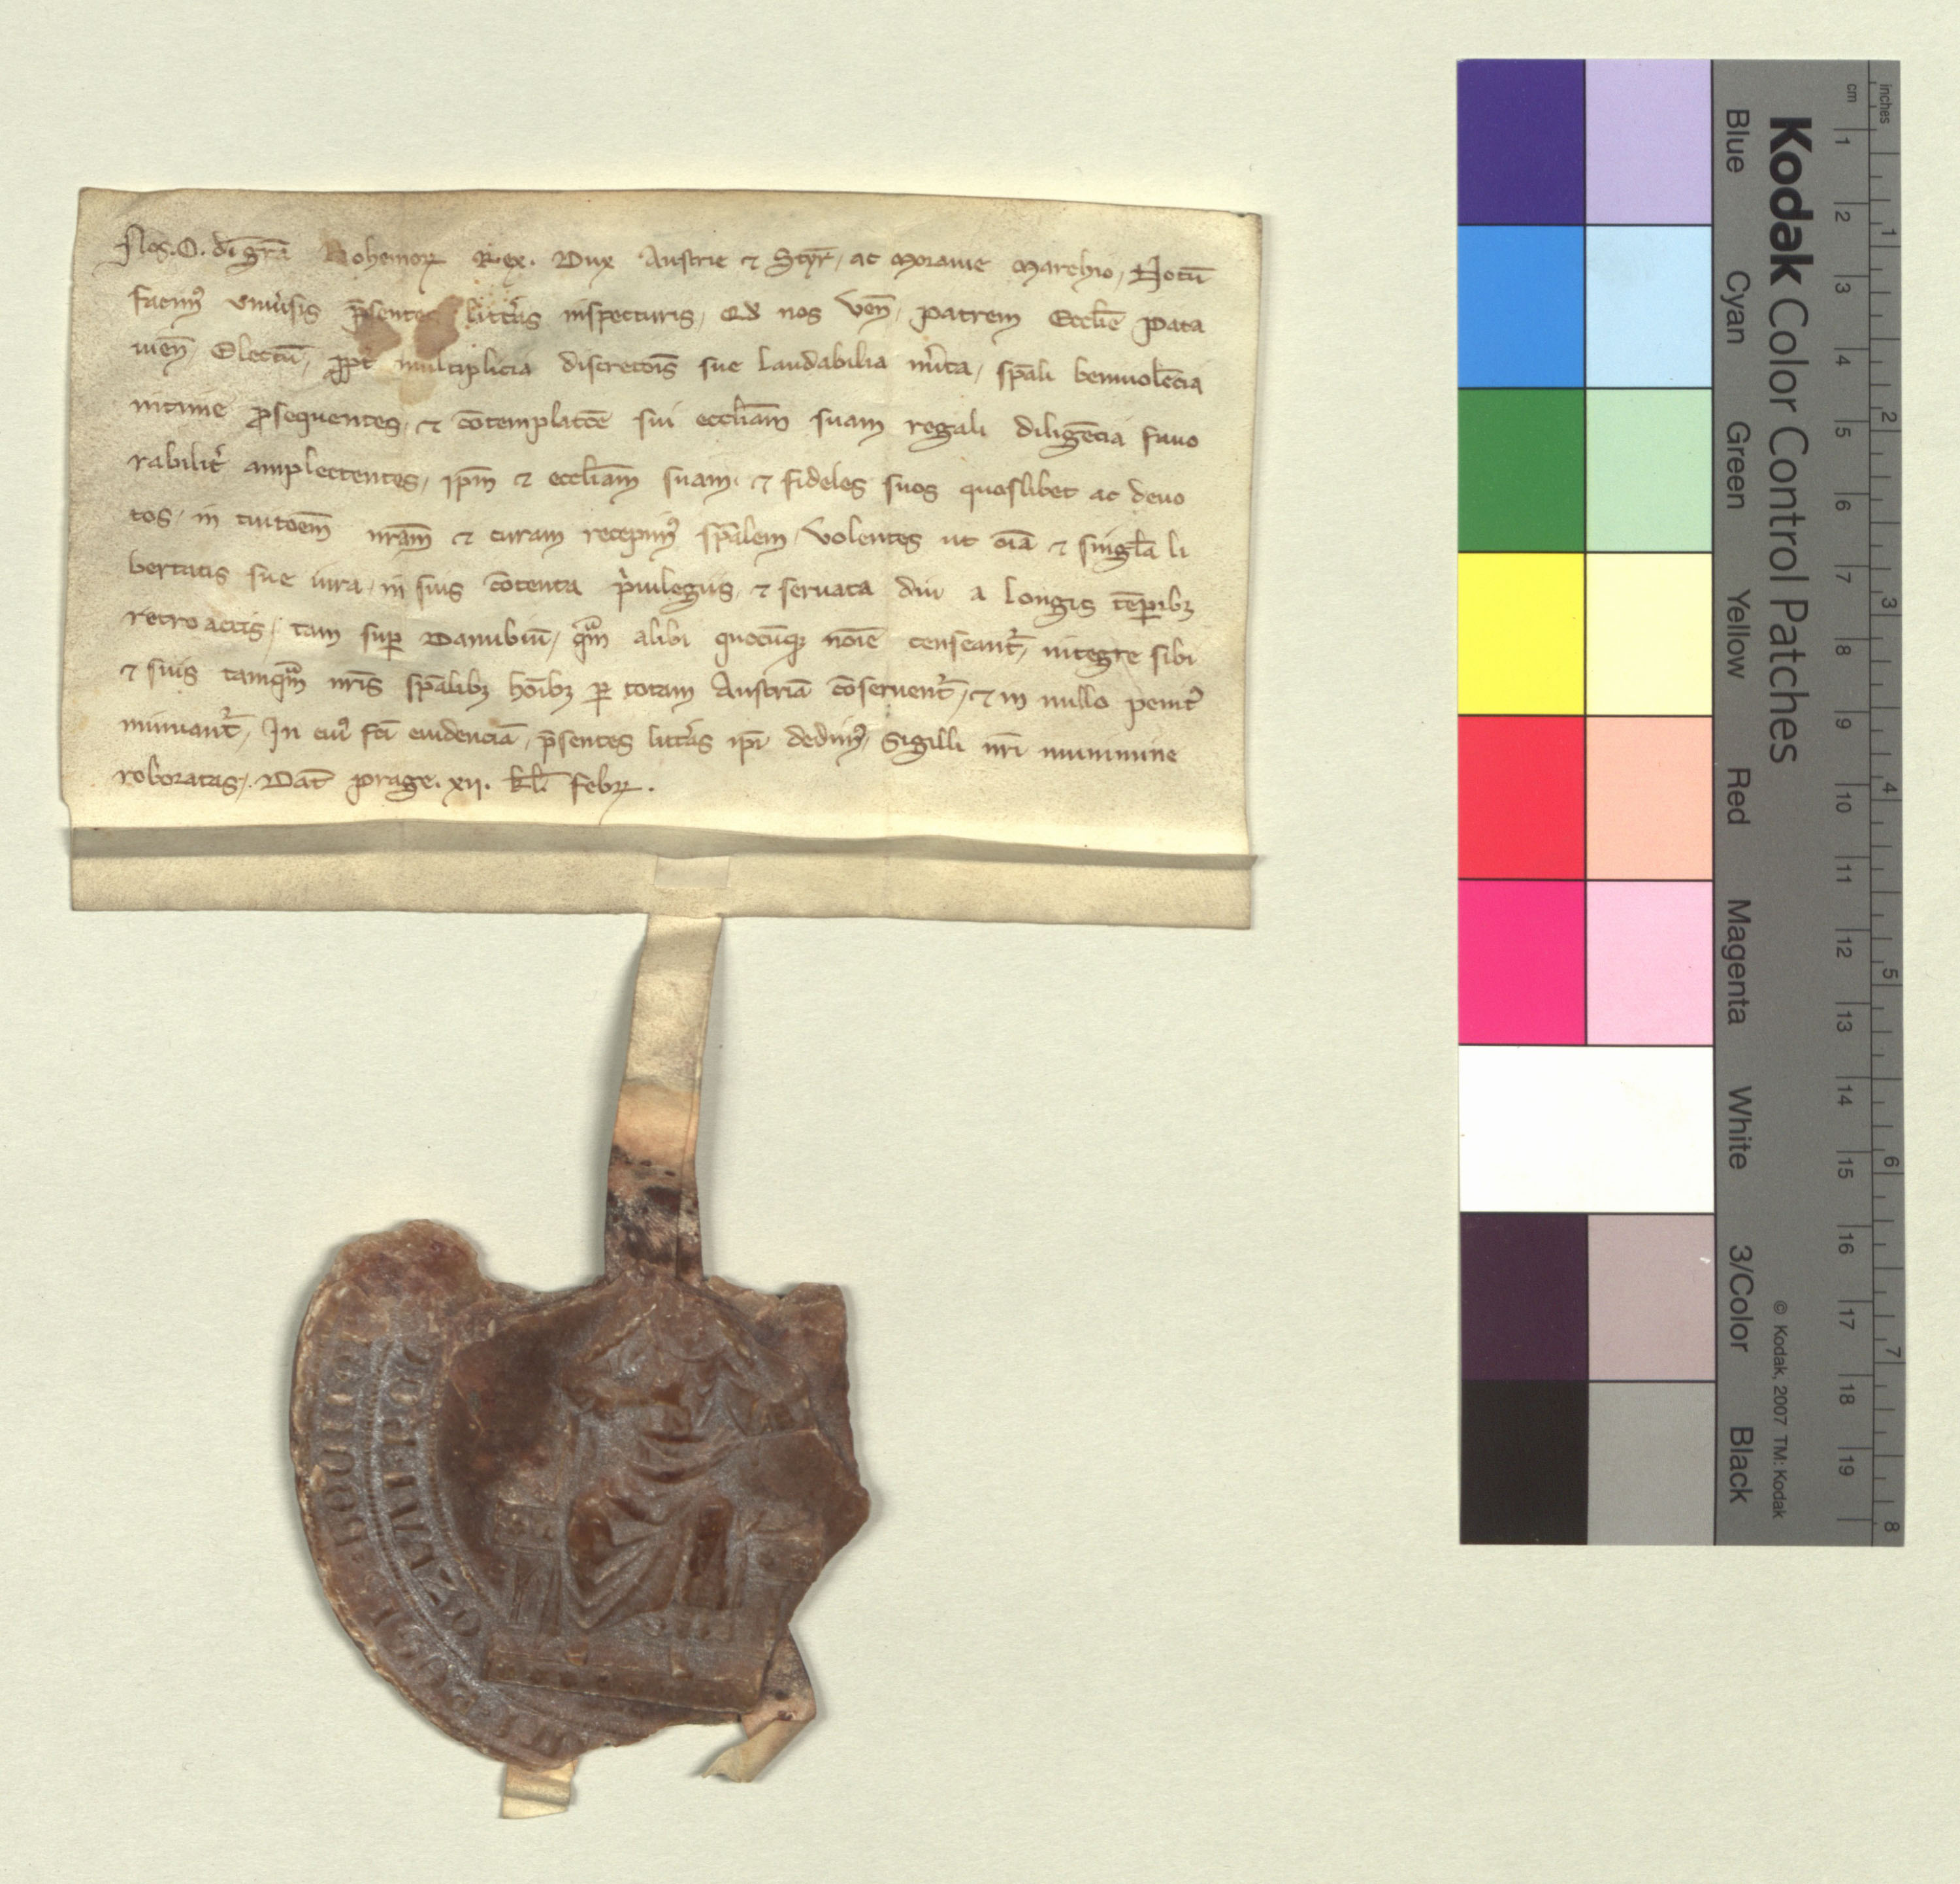 Nos. O. dī gr̄a Bohemoꝝ Rex. Dux Austrie ⁊ Styr̄, ac Morauie Marchio, Notū
facimꝰ vniu͛sis p̄sentes litt͛as inspecturis, Qd nos Ven̄, patrem Eccl̄ie Pata
uien̄, Electū, ꝓpt͛ multiplicia discretōis sue laudabilia m͛ita, sp̄ali beniuolēcia
intime ꝓsequentes, ⁊ cōtemplatōe sui eccl̄iam suam regali diligēcia fauo
rabilit͛ amplectentes, ip̄m ⁊ eccl̄iam suam, ⁊ fideles suos quoslibet ac deuo
tos, in tuitōem nr̄am ⁊ curam recepimꝰ sp̄alem, Volentes ut oīa ⁊ singl̄a li
bertatis sue iura, in suis cōtenta pͥuilegiis, ⁊ seruata diu a longis tēꝑibꝫ
retro actis, tam suꝑ Danubiū, qͣm alibi quocūqꝫ noīe censeant᷑, integre sibi
⁊ suis tamqͣm nr̄is sp̄alibꝫ hoībꝫ ꝑ totam Austriā cōseruent᷑, ⁊ in nullo penit͛
minuant᷑, In cuiꝰ fc̄i euidenciā, p̄sentes litt͛as ip̄i dedimꝰ, Sigilli nr̄i munimine
roboratas, Dat̄ Prage. xii. kl̄. Febꝝ.
Kodak Color Control Patches
© Kodak, 2007 TM: Kodak
Blue Cyan Green Yellow Red Magenta White 3/Color Black
cm 1 2 3 4 5 6 7 8 9 10 11 12 13 14 15 16 17 18 19
inches 1 2 3 4 5 6 7 8